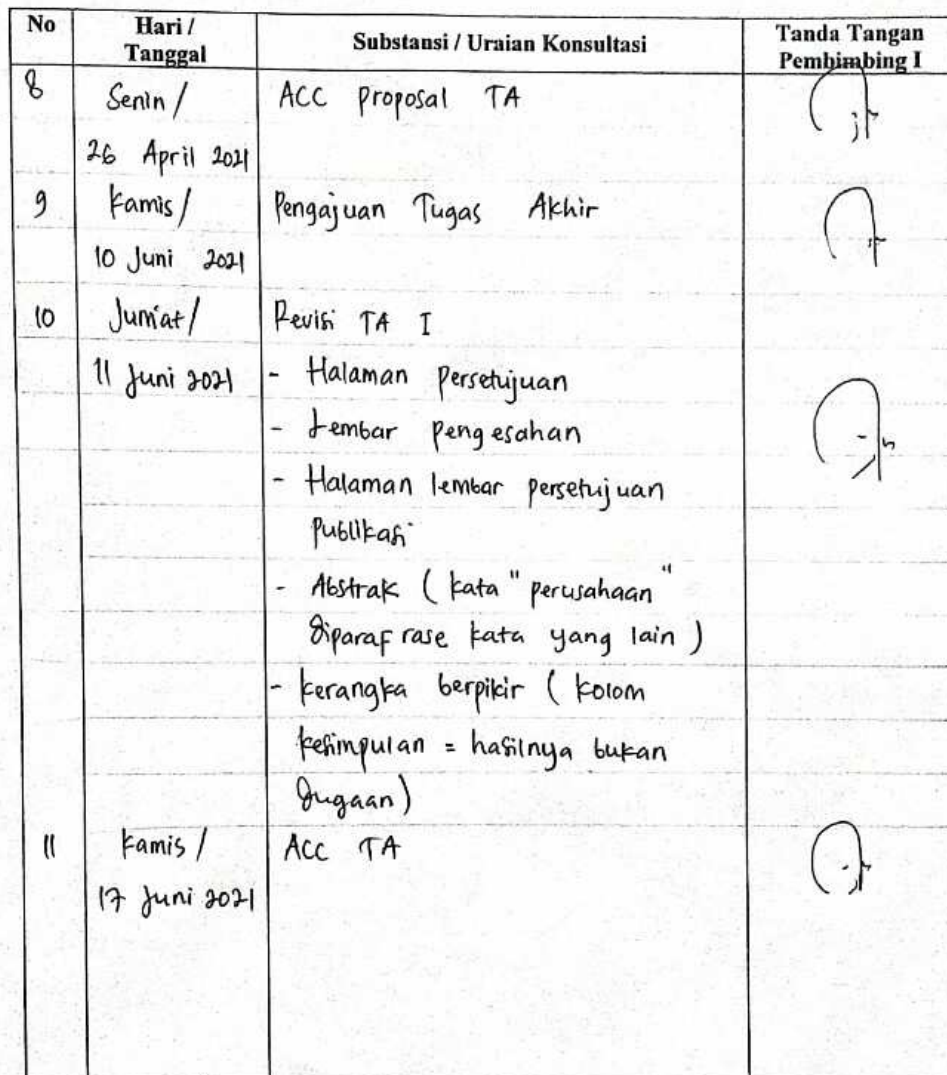 No Hari / Tanggal Substansi / Uraian Konsultasi Tanda Tangan Pembimbing I
8 Senin / ACC Proposal TA
26 April 2021
9 Kamis / Pengajuan Tugas Akhir
10 Juni 2021
10 Jum'at / Revisi TA I
11 Juni 2021 - Halaman persetujuan
- Lembar pengesahan
- Halaman lembar persetujuan
Publikasi
- Abstrak ( kata " perusahaan "
diparafrase kata yang lain )
- kerangka berpikir ( kolom
kesimpulan = hasilnya bukan
dugaan )
11 Kamis / ACC TA
17 Juni 2021